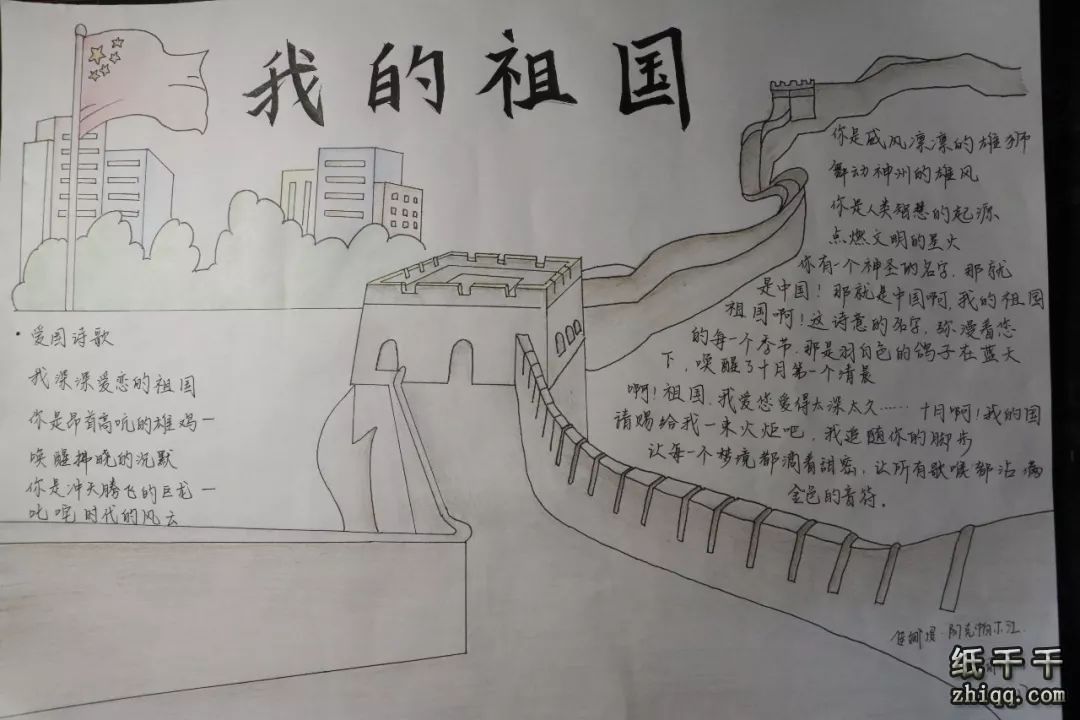 我的祖国
·爱国诗歌
我深深爱恋的祖国
你是昂首高吭的雄鸡一
唤醒拂晚的沉默
你是冲天腾飞的巨龙一
叱咤时代的风云
你是威风凛凛的雄狮
舞动神州的雄风
你是人类智慧的起源
点燃文明的星火
你有一个神圣的名字,那就
是中国!那就是中国啊,我的祖国
祖国啊!这诗意的名字,弥漫着您
的每一个季节,那是羽白色的鸽子在蓝天
下,唤醒了十月第一个清晨
啊!祖国,我爱您爱得太深太久……十月啊!我的国
请赐给我一束火炬吧,我追随你的脚步
让每一个梦境都滴着甜密,让所有歌喉都沾满
金色的音符。
娜·阿克帕尔江
纸千千
zhiqq.com